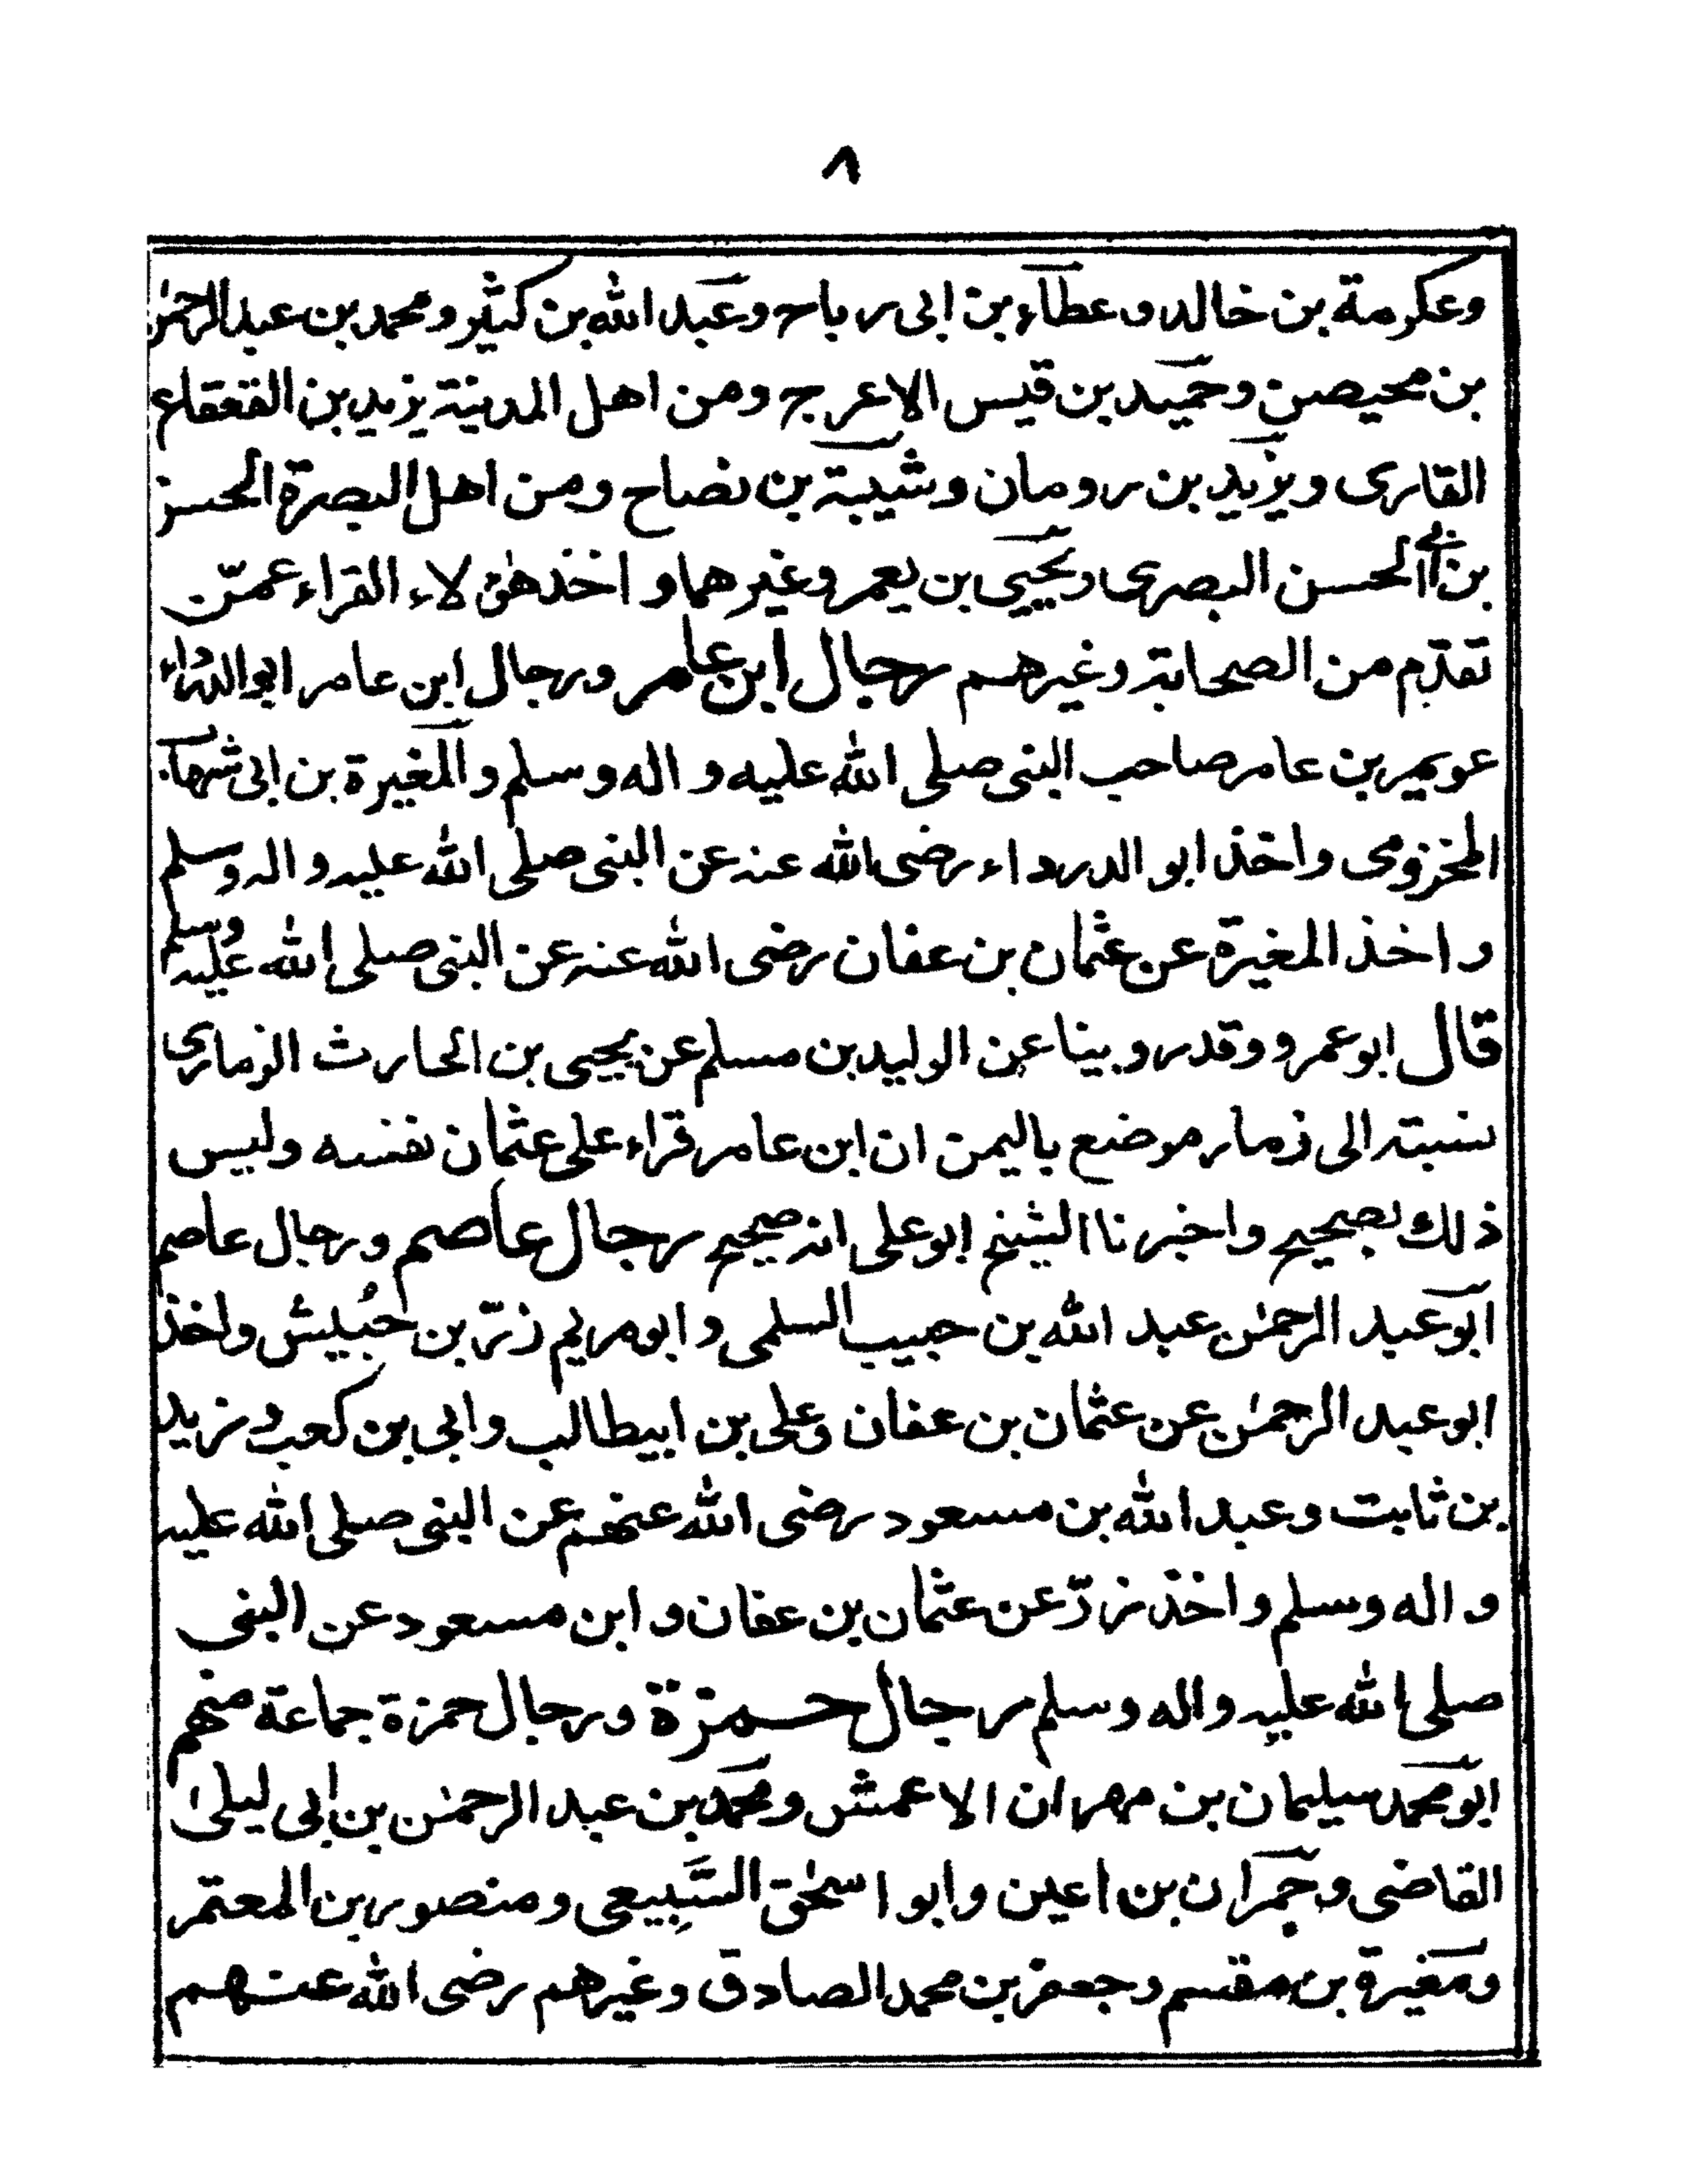 ٨
وعكرمة بن خالد وعطاء بن ابى رباح وعبد الله بن كثير ومحمد بن عبد الرحمٰن
بن محيصن وحميد بن قيس الاعرج ومن اهل المدينة يزيد بن القعقاع
القارى ويزيد بن رومان وشيبة بن نصاح ومن اهل البصرة الحسن
بن ابى الحسن البصرى ويحيى بن يعمر وغيرهما و اخذ هٰؤلاء القراء عمّن
تقدّم من الصحابة وغيرهم رجال ابن عامر ورجال ابن عامر ابو الدرداء
عويمر بن عامر صاحب النبى صلى الله عليه و اله وسلم والمغيرة بن ابى شهاب
المخزومى واخذ ابو الدرداء رضى الله عنه عن النبى صلى الله عليه و اله وسلم
و اخذ المغيرة عن عثمان بن عفان رضى الله عنه عن النبى صلى الله عليه وسلم
قال ابو عمرو وقد روينا عن الوليد بن مسلم عن يحيى بن الحارث الزمارى
نسبته الى ذمار موضع باليمن ان ابن عامر قراء على عثمان نفسه وليس
ذلك بصحيح واخبرنا الشيخ ابو على انه صحيح رجال عاصم ورجال عاصم
ابو عبد الرحمٰن عبد الله بن حبيب السلمى و ابو مريم زرّ بن حُبيش واخذ
ابو عبد الرحمٰن عن عثمان بن عفان وعلى بن ابيطالب وابى بن كعب و زيد
بن ثابت وعبد الله بن مسعود رضى الله عنهم عن النبى صلى الله عليه
و اله وسلم و اخذ زرّ عن عثمان بن عفان و ابن مسعود عن النبى
صلى الله عليه واله وسلم رجال حمزة ورجال حمزة جماعة منهم
ابو محمد سليمان بن مهران الاعمش ومحمد بن عبد الرحمٰن بن ابى ليلىٰ
القاضى وحمران بن اعين وابو اسحٰق السَّبِيعى ومنصور بن المعتمر
ومغيرة بن مقسم وجعفر بن محمد الصادق وغيرهم رضى الله عنهم